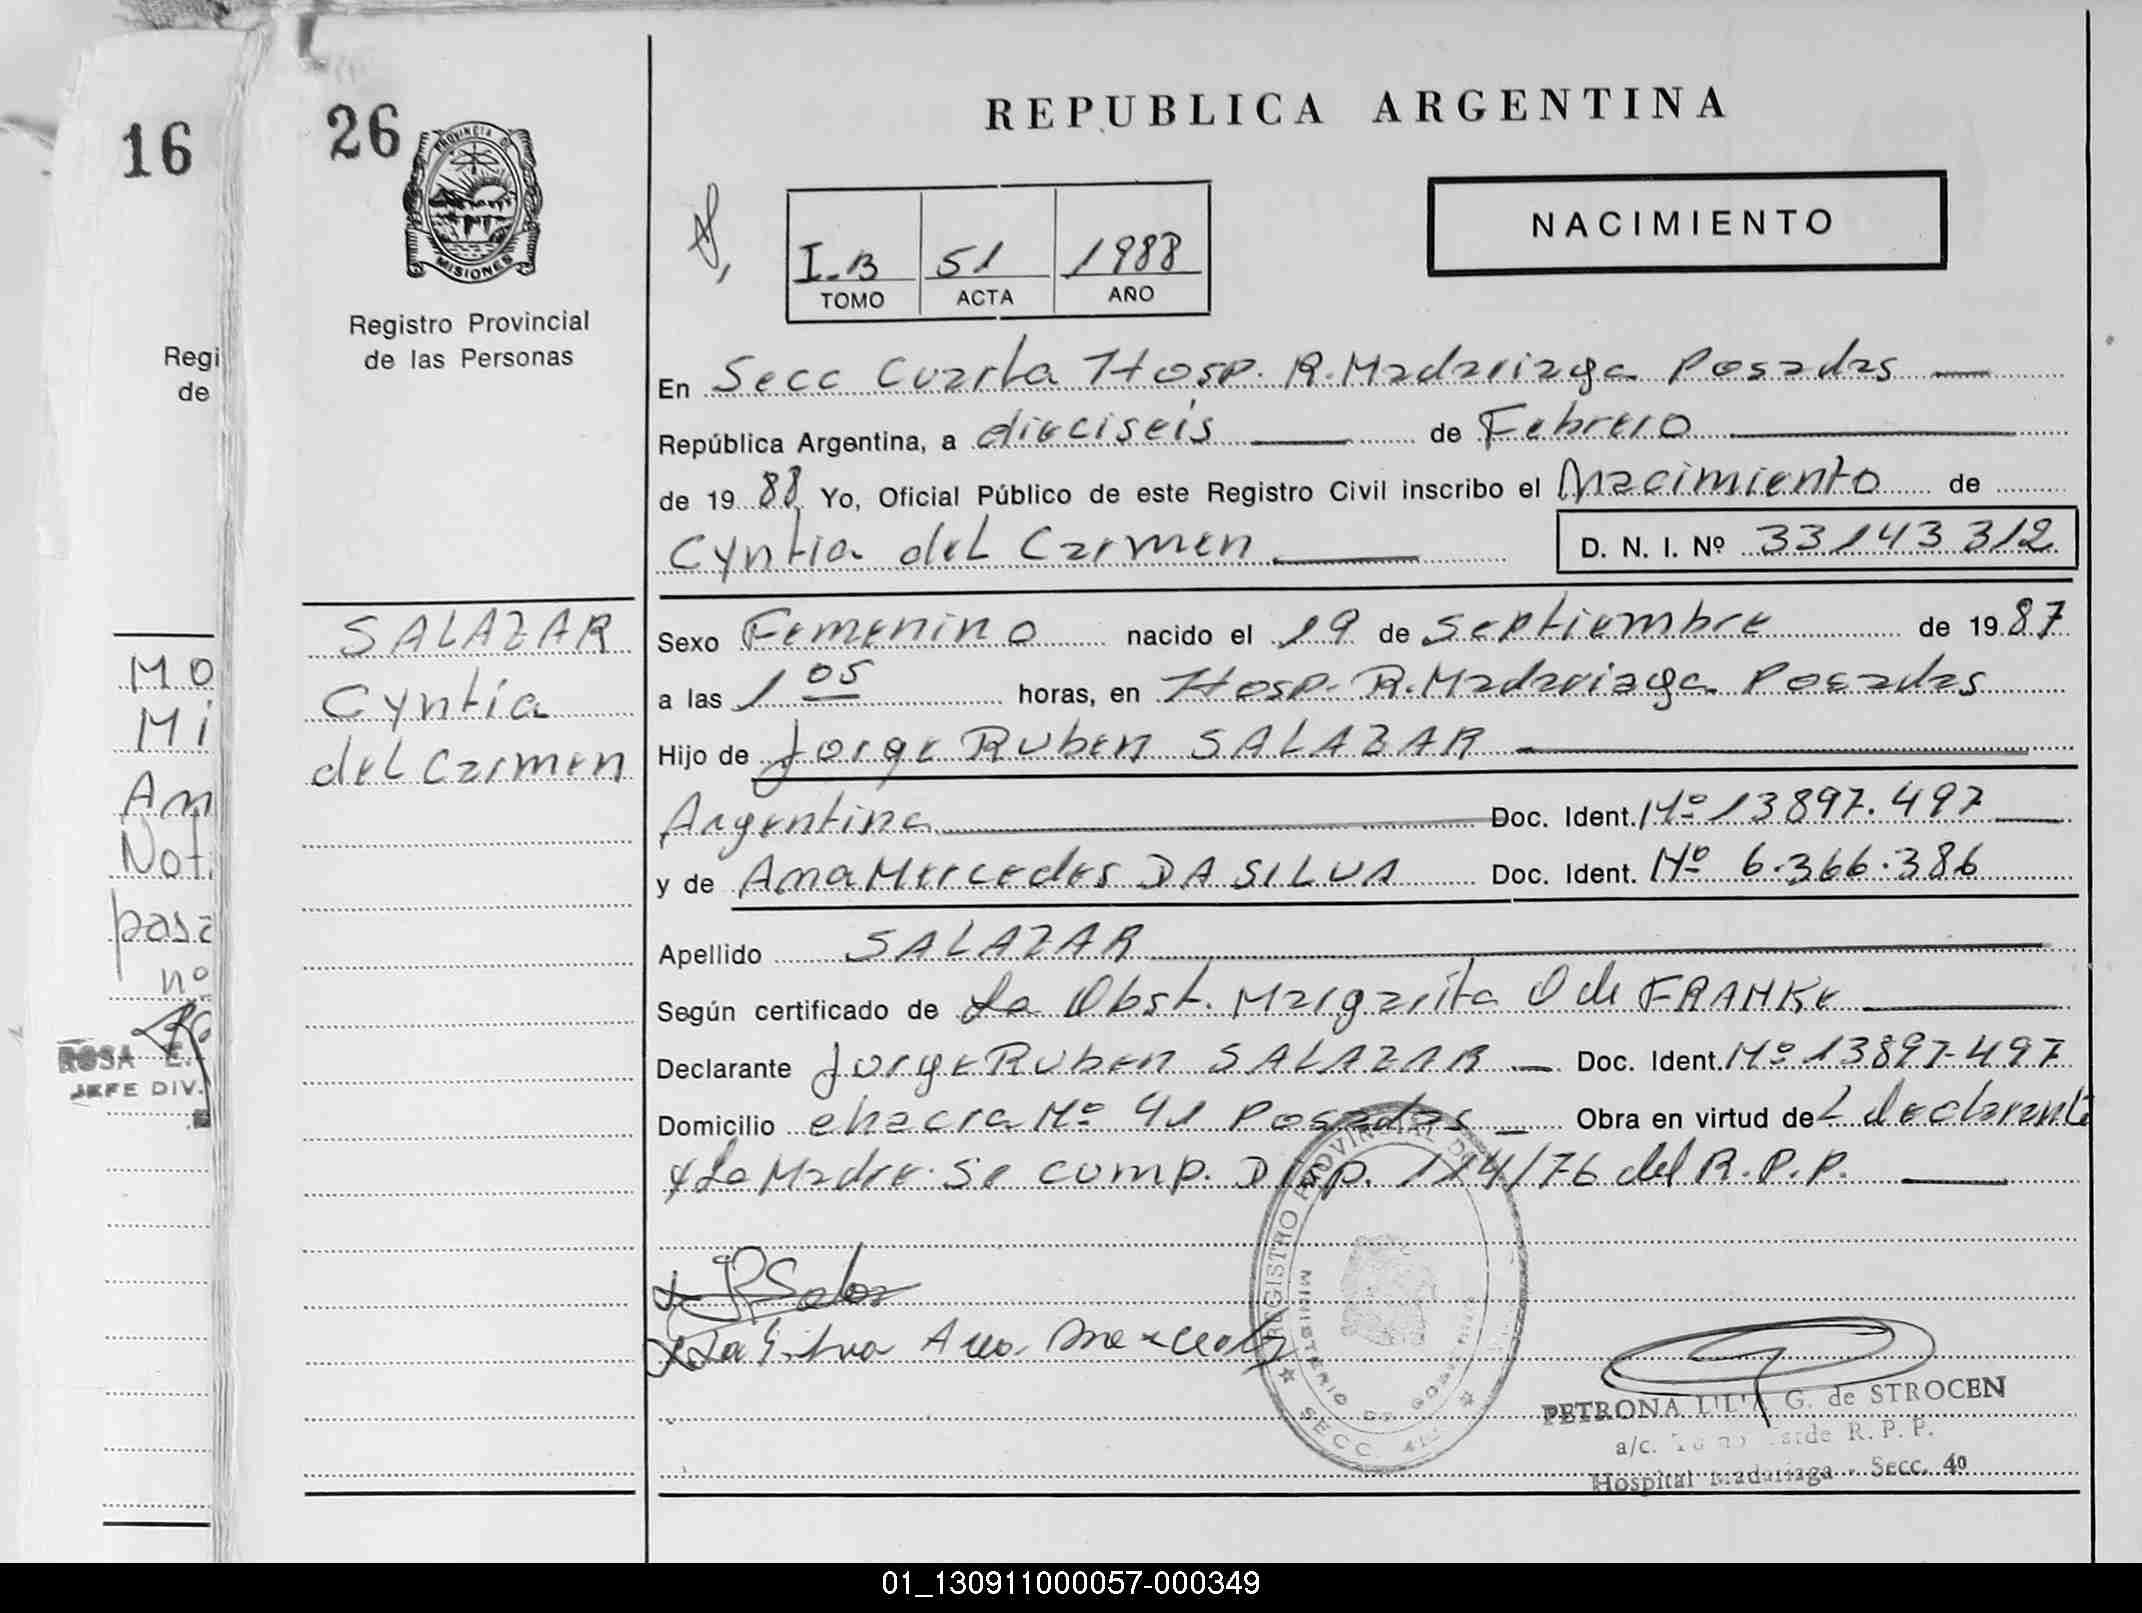 16
Regi
de
MO
Mi
An
Not
pasa
nº
ROSA E.
JEFE DIV.
26
PROVINCIA DE
MISIONES
Registro Provincial
de las Personas
SALAZAR
Cyntia
del Carmen
REPUBLICA ARGENTINA
I-B 51 1988
TOMO ACTA AÑO
NACIMIENTO
En Secc Cuarta Hosp. R. Madariaga Posadas
República Argentina, a dieciseis de Febrero
de 19 88 Yo, Oficial Público de este Registro Civil inscribo el Nacimiento de
Cyntia del Carmen D. N. I. Nº 33143312
Sexo Femenino nacido el 19 de septiembre de 19 87
a las 1 05 horas, en Hosp. R. Madariaga Posadas
Hijo de Jorge Ruben SALAZAR
Argentina Doc. Ident. Nº 13897.497
y de Ana Mercedes DA SILVA Doc. Ident. Nº 6.366.386
Apellido SALAZAR
Según certificado de La Obst. Margarita O de FRANKE
Declarante Jorge Ruben SALAZAR Doc. Ident. Nº 13897-497
Domicilio chacra Nº 41 Posadas Obra en virtud de L declarante
y La Madre. Se comp. Disp. 114/76 del R.P.P.
Da Silva Ana Mercedes
REGISTRO PROVINCIAL DE
MINISTERIO DE
SECC
PETRONA G. de STROCEN
a/c. R. P. P.
Hospital Madariaga - Secc. 4º
01_130911000057-000349